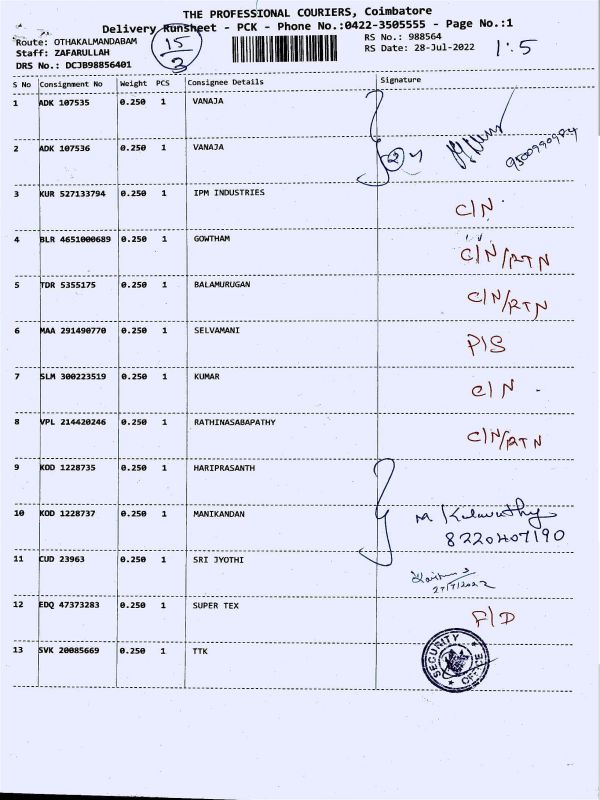 THE PROFESSIONAL COURIERS, Coimbatore
Delivery Runsheet - PCK - Phone No.:0422-3505555 - Page No.:1
Route: OTHAKALMANDABAM
15
3
RS No.: 988564
1:5
Staff: ZAFARULLAH
RS Date: 28-Jul-2022
DRS No.: DCJB98856401
S No Consignment No Weight PCS Consignee Details Signature
1 ADK 107535 0.250 1 VANAJA
2 ADK 107536 0.250 1 VANAJA 2
3 KUR 527133794 0.250 1 IPM INDUSTRIES C/N
4 BLR 4651000689 0.250 1 GOWTHAM C/N/RTN
5 TDR 5355175 0.250 1 BALAMURUGAN C/N/RTN
6 MAA 291490770 0.250 1 SELVAMANI P/S
7 SLM 300223519 0.250 1 KUMAR C/N
8 VPL 214420246 0.250 1 RATHINASABAPATHY C/N/RTN
9 KOD 1228735 0.250 1 HARIPRASANTH
10 KOD 1228737 0.250 1 MANIKANDAN M Kalavathy
8220407190
11 CUD 23963 0.250 1 SRI JYOTHI
12 EDQ 47373283 0.250 1 SUPER TEX F/D
13 SVK 20085669 0.250 1 TTK SECURITY OFFICE